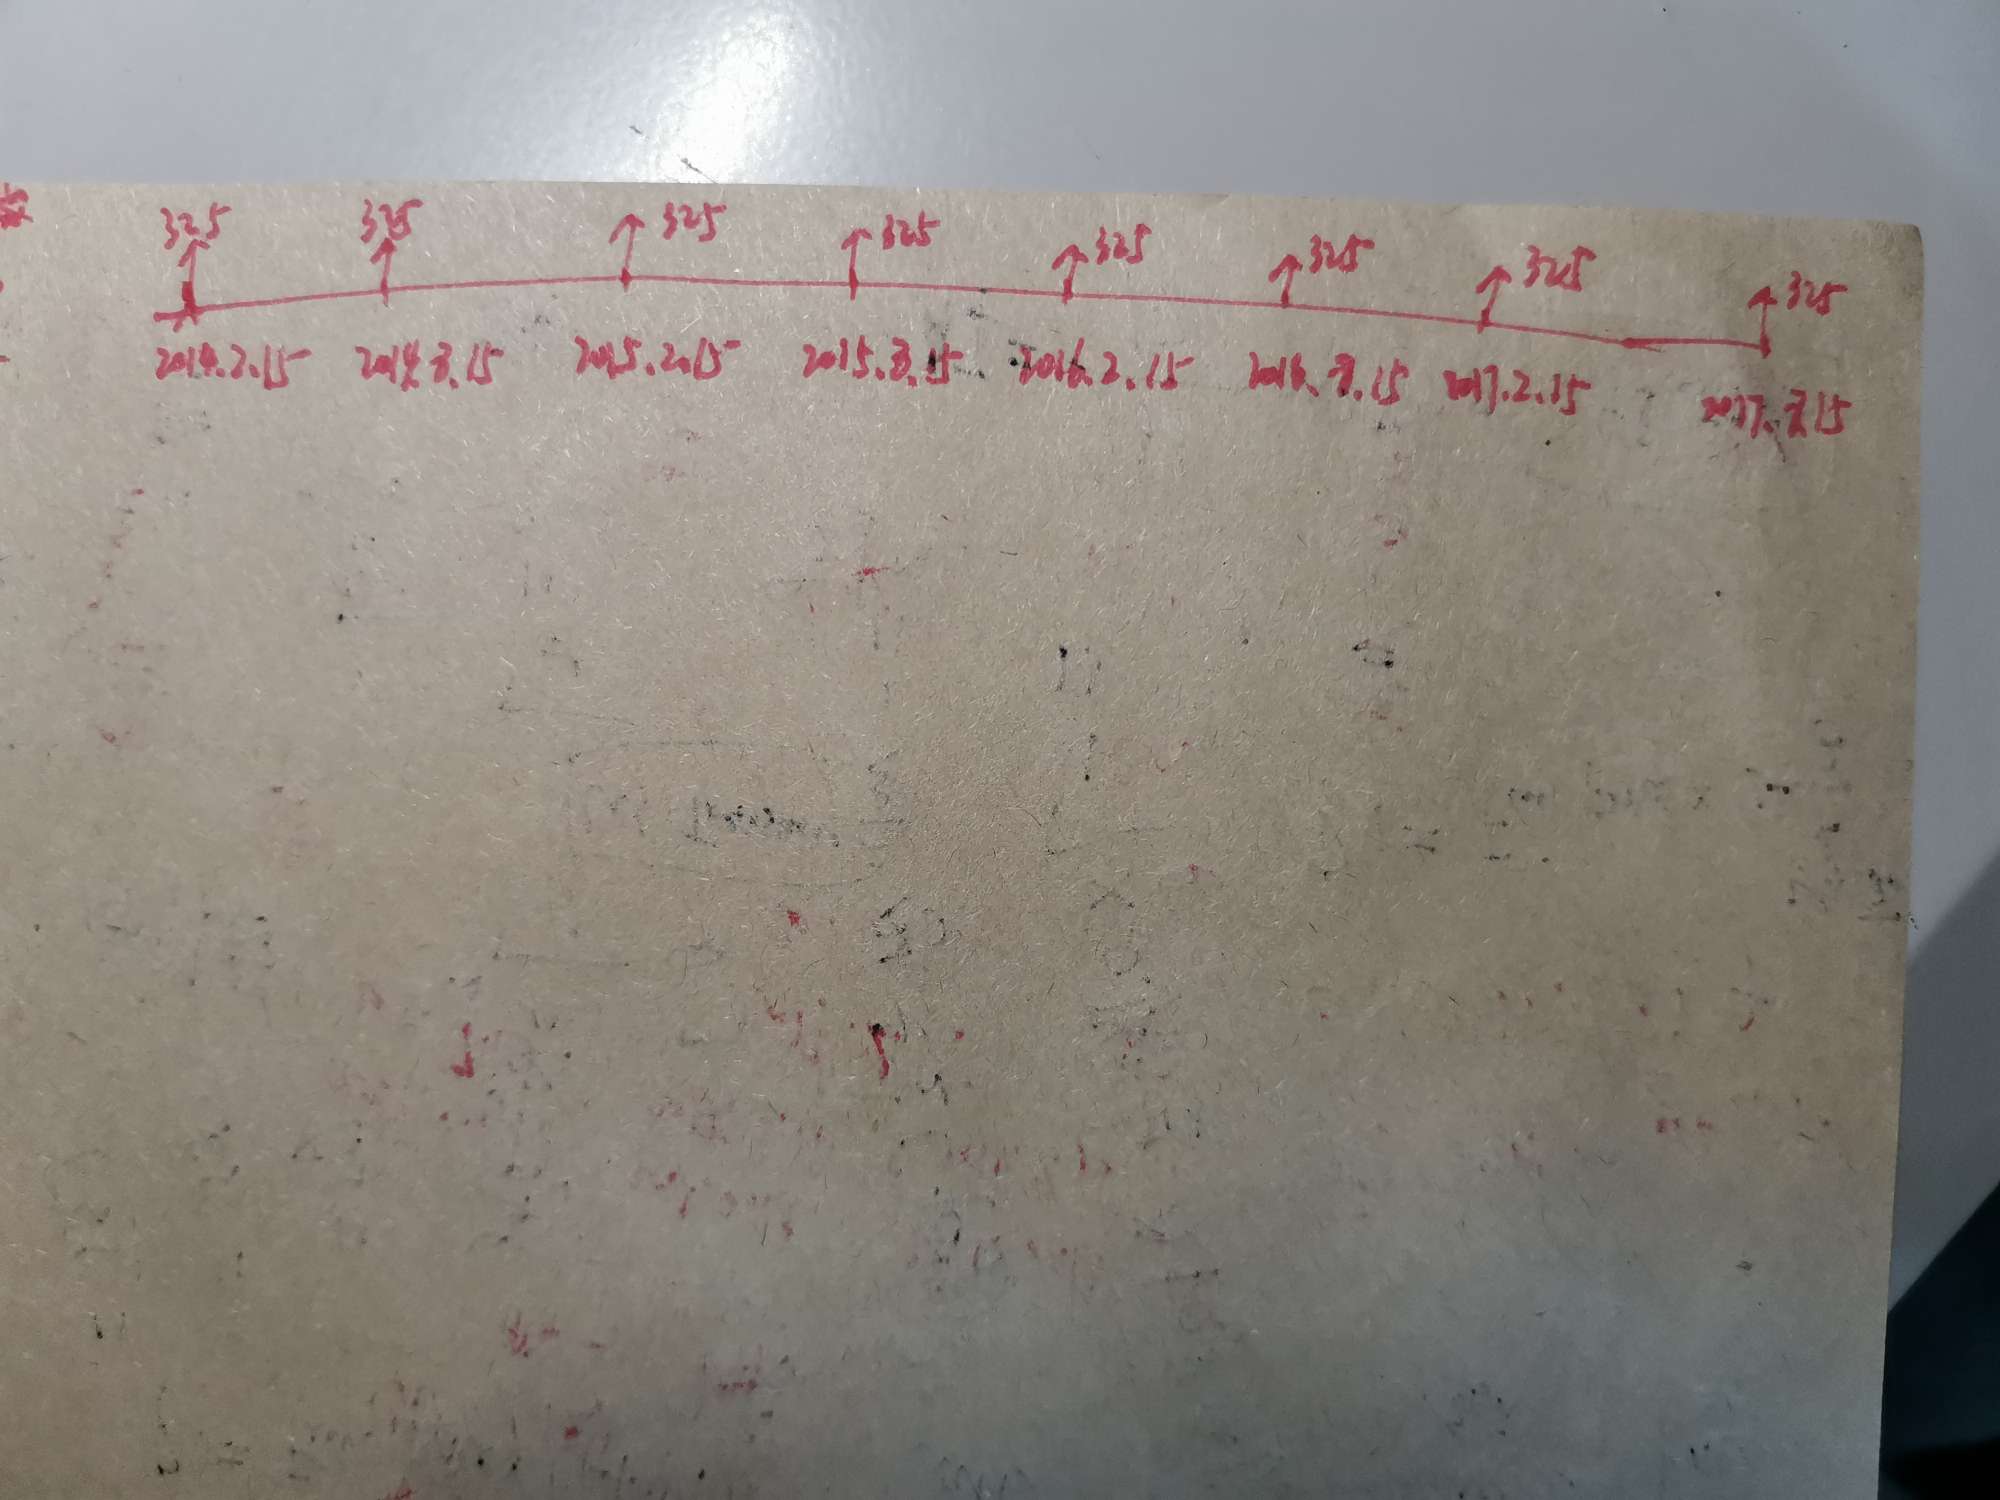 325 325 325 325 325 325 325 325
2014.2.15 2014.8.15 2015.2.15 2015.8.15 2016.2.15 2016.8.15 2017.2.15 2017.8.15